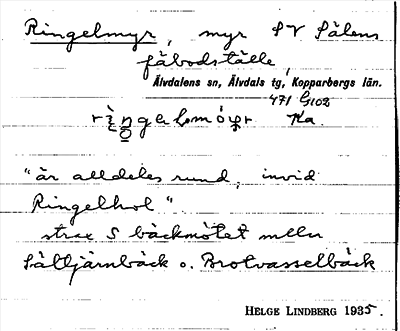 Ringelmyr, myr SV Sälens
fäbodställe,
Älvdalens sn, Älvdals tg, Kopparbergs län.
471 G102
Ka.
"är alldeles rund, invid
Ringelhol"
strax S bäckmötet mellan
Sältjärnbäck o. Brotvasselbäck
HELGE LINDBERG 1935.